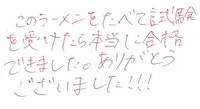 このラーメンをたべて試験
を受けたら本当に合格
できました。ありがとう
ございました!!!